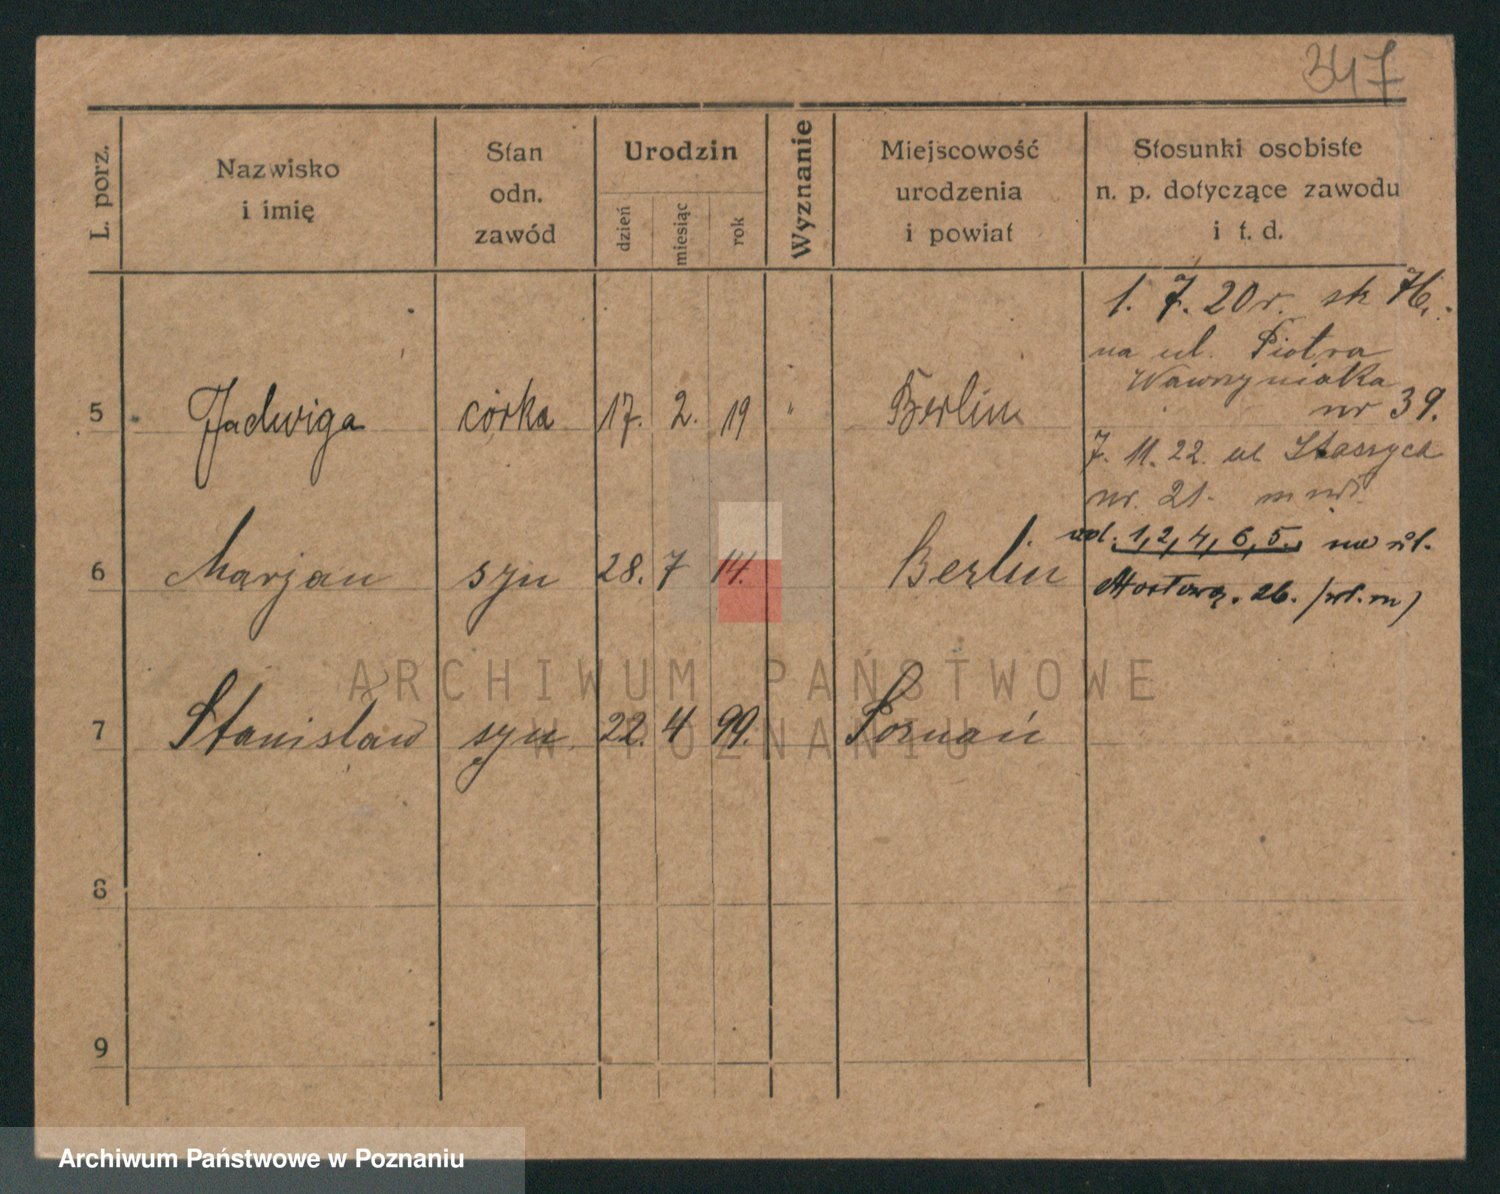 347
L. porz.
Nazwisko
i imię
Stan
odn.
zawód
Urodzin
dzień
miesiąc
rok
Wyznanie
Miejscowość
urodzenia
i powiat
Stosunki osobiste
n. p. dotyczące zawodu
i t. d.
1. 7. 20 r. sk 76,
na ul. Piotra
Wawrzyniaka
nr 39.
5 Jadwiga córka 17. 2. 19 " Berlin
7. 11. 22. ul Staszyca
nr. 21.
6 Marjan syn 28. 7 14. Berlin
1, 2, 4, 6, 5. na ul.
Mostową. 26.
7 Stanisław syn 22. 4 99. Poznań
8
9
ARCHIWUM PAŃSTWOWE
W POZNANIU
Archiwum Państwowe w Poznaniu